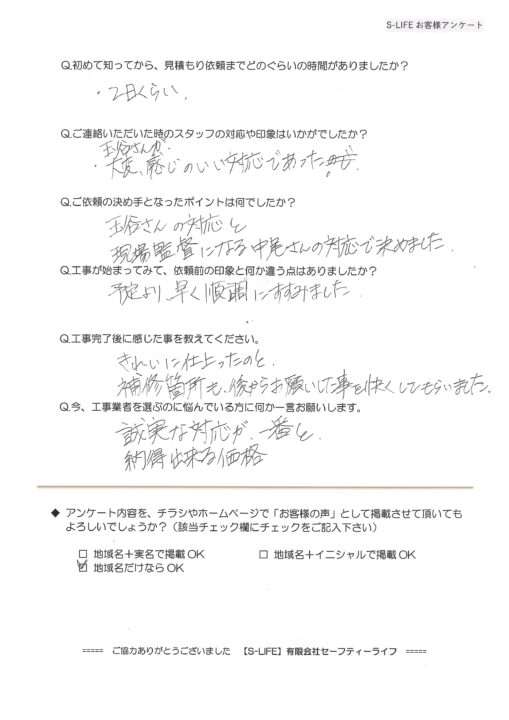 S-LIFE お客様アンケート
Q.初めて知ってから、見積もり依頼までどのぐらいの時間がありましたか?
・2日くらい.
Q.ご連絡いただいた時のスタッフの対応や印象はいかがでしたか?
玉谷さんが.
・大変、感じのいい対応であった
Q.ご依頼の決め手となったポイントは何でしたか?
玉谷さんの対応と
現場監督になる中尾さんの対応で決めました.
Q.工事が始まってみて、依頼前の印象と何か違う点はありましたか?
予定より、早く順調にすすみました.
Q.工事完了後に感じた事を教えてください。
きれいに仕上ったのと.
補修箇所も、後からお願いした事を快くしてもらいました.
Q.今、工事業者を選ぶのに悩んでいる方に何か一言お願いします。
誠実な対応が、一番と.
納得出来る価格
◆ アンケート内容を、チラシやホームページで「お客様の声」として掲載させて頂いても
よろしいでしょうか?(該当チェック欄にチェックをご記入下さい)
□ 地域名+実名で掲載 OK □ 地域名+イニシャルで掲載 OK
☑ 地域名だけなら OK
===== ご協力ありがとうございました 【S-LIFE】有限会社セーフティーライフ =====